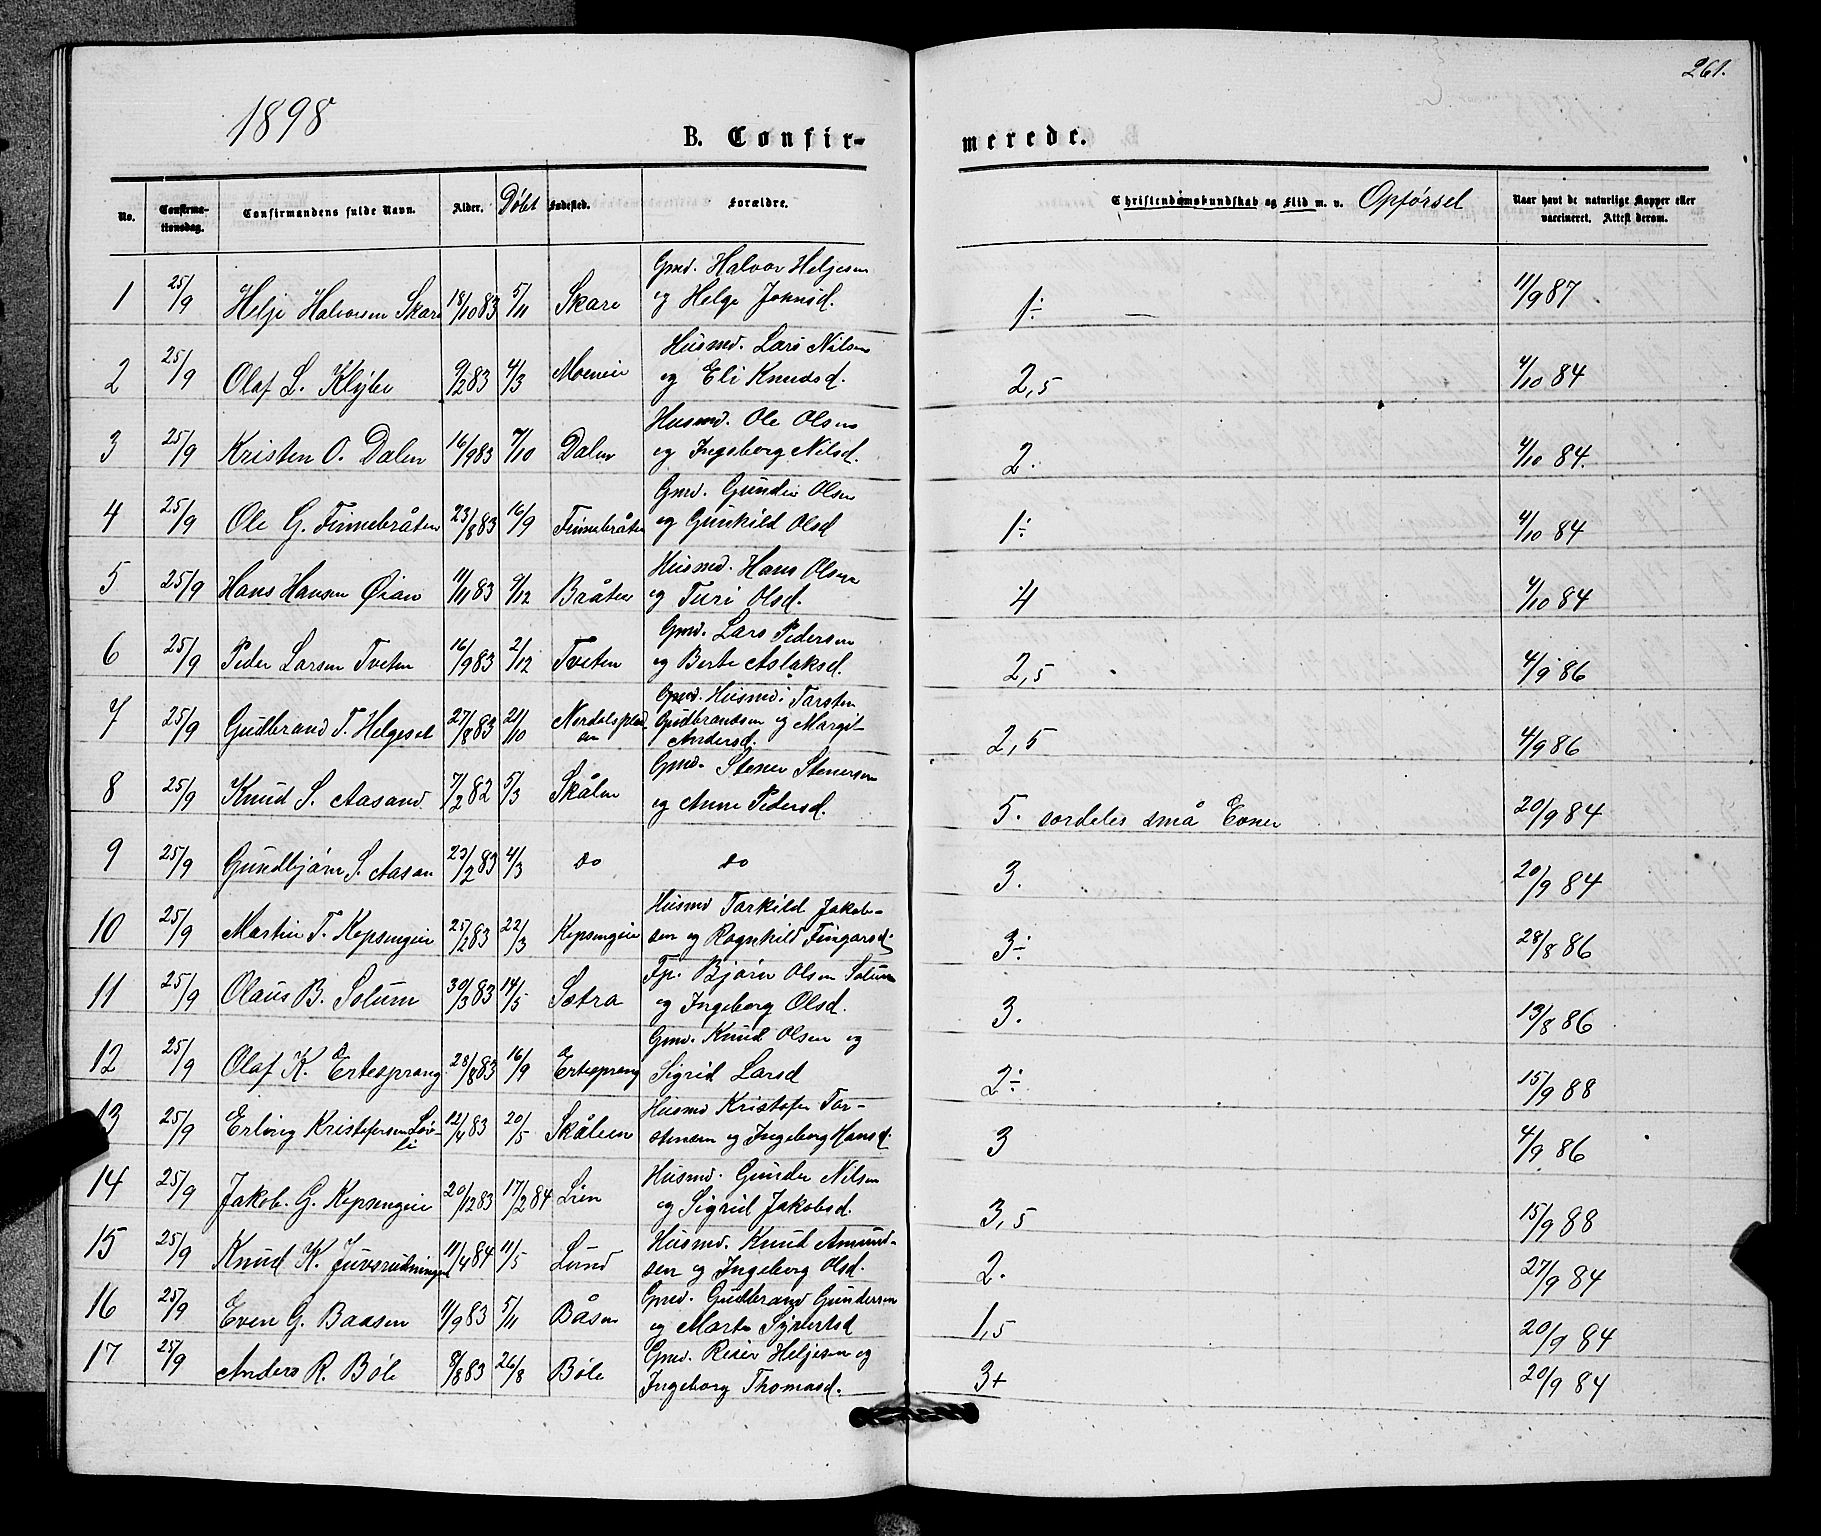 261.
1898
B. Confir- merede.
No. Confirma-tionsdag. Confirmandens fulde Navn. Alder. Døbt Indested. Forældre. Christendomskundskab og Flid m. v. Opførsel Naar havt de naturlige Kopper eller vaccineret. Attest derom.
Gmd. Halvor Helgesen
1 25/9 Helje Halvorsen Skare 18/10 83 5/11 Skare og Helge Johnsd. 1÷ — 11/9 87
Husmd. Lars Nilsen
2 25/9 Olaf L. Klÿbe 9/2 83 4/3 og Eli Knudsd. 2,5 4/10 84
Husmd. Ole Olsen
3 25/9 Kristen O. Dalen 16/9 83 7/10 Dalen og Ingeborg Nilsd. 2. 4/10 84.
Gmd. Gunder Olsen
4 25/9 Ole G. Finnebråten 23/8 83 16/9 Finnebråten og Gunhild Olsd 1÷ 4/10 84
Husmd. Hans Olsen
5 25/9 Hans Hansen Øian 11/11 83 9/12 Bråten og Turi Olsd. 4 4/10 84
Gmd. Lars Pedersen
6 25/9 Peder Larsen Tveten 16/9 83 2/12 Tveten og Berte Aslaksd. 2,5 4/9 86
Husmd. Tarsten
7 25/9 Gudbrand T. Helgeset 27/8 83 21/10 Gudbrandsen og Margit 2,5 4/9 86
Andersd.
Gmd. Stener Stenersen
8 25/9 Knud S. Aasand 7/2 82 5/3 Skålen og Anne Pedersd. 5. særdeles små Evner 20/9 84
9 25/9 Gundbjørn S. Aasan 23/2 83 4/3 do do 3. 20/9 84
Husmd Tarkild Jakob-
10 25/9 Martin T. Kopsengeie 25/2 83 22/3 Kopsengeie sen og Ragnhild Fingarsd. 3÷ 28/8 86
Bjørn Olsen Solum
11 25/9 Olaus B. Solum 30/3 83 14/5 Sætra og Ingeborg Olsd. 3. 13/8 86
Gmd. Knud Olsen og
12 25/9 Olaf K. Ertesprang 28/8 83 16/9 Ertesprang Sigrid Larsd 2÷ 15/9 88
Husmd Kristofer Tor-
13 25/9 Erling Kristofersen Løv-li 12/4 83 20/5 Skålien stensen og Ingeborg Hansd. 3 4/9 86
Husmd. Gunder Nilsen
14 25/9 Jakob G. Kopsengeie 20/12 83 17/2 84 Lien og Sigrid Jakobsd. 3,5 15/9 88
Husmd. Knud Amund-
15 25/9 Knud K. Juvsrudningen 11/4 84 11/5 Lund sen og Ingeborg Olsd. 2. 27/9 84
Gmd. Gudbrand Gundersen
16 25/9 Even G. Baasen 1/9 83 5/11 Båsen og Marte Syvertsd 1,5 20/9 84
Gmd. Reier Heljesen og
17 25/9 Anders R. Bøle 8/8 83 26/8 Bøle Ingeborg Thomasd. 3+ 20/9 84